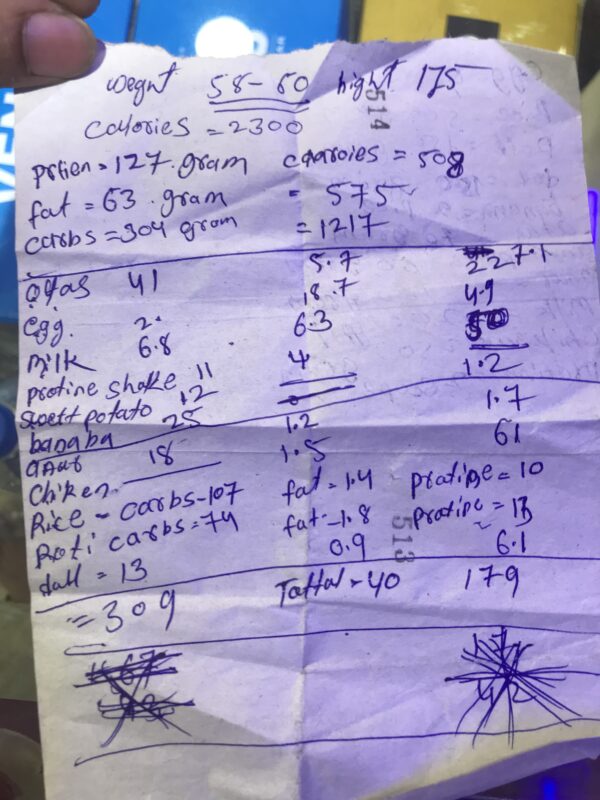 wegnt 58-60 hight 175
514
calories = 2300
prtien = 127. gram caaroies = 508
fat = 63. gram = 575
carbs = 304 gram = 1217
41 5.7 227.1
egg. 2. 18.7 4.9
milk 6.8 6.3
protine shake 11 4 1.2
swett potato 12
bananba 25 1.2 1.7
18 1.5 61
Chiken
Rice - carbs-107 fat = 1.4 protine = 10
Roti carbs = 74 fat - 1.8 protine = 13
513
dall = 13 0.9 6.1
= 309 Tottal = 40 179